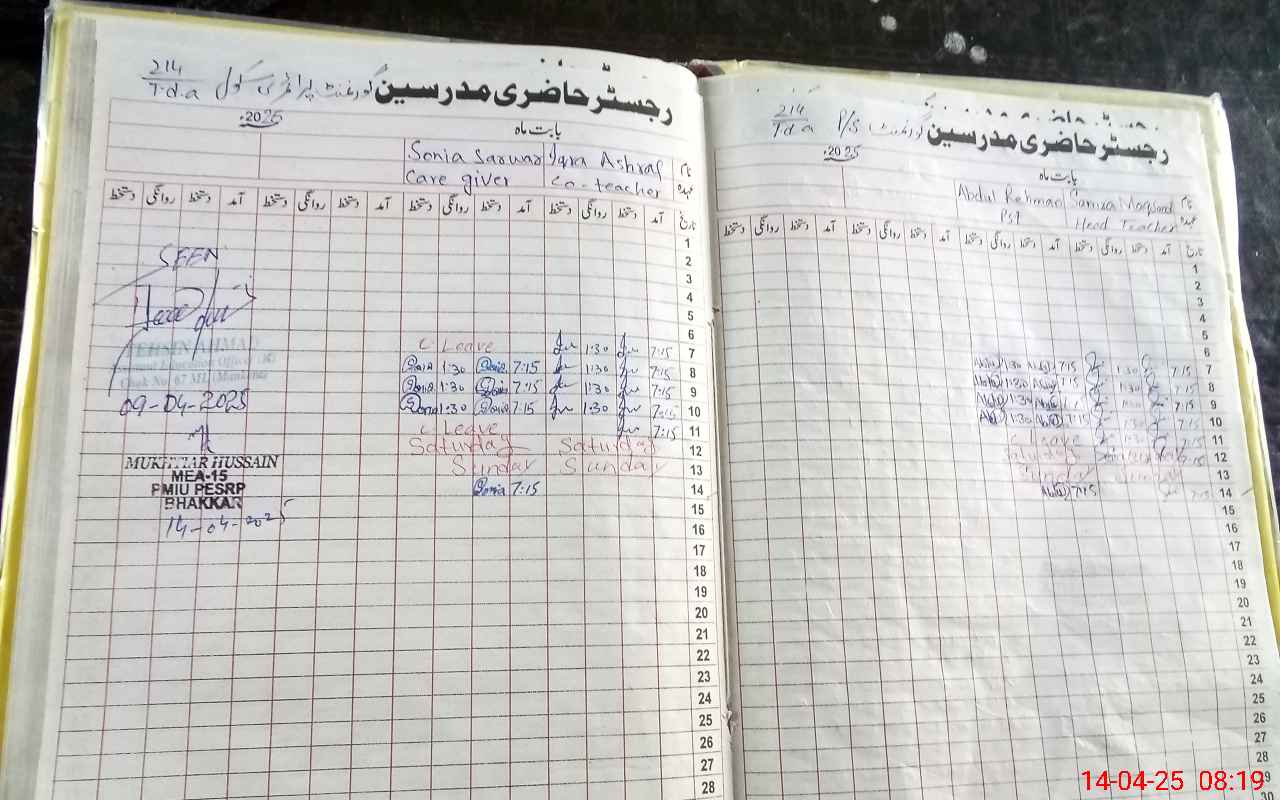 رجسٹر حاضری مدرسین گورنمنٹ پرائمری سکول 214/T.d.a
بابت ماہ 2025
نام Iqra Ashraf Sonia Sarwar
عہدہ Co-teacher Care giver
تاریخ آمد دستخط روانگی دستخط آمد دستخط روانگی دستخط آمد دستخط روانگی دستخط آمد دستخط روانگی دستخط
1
2
3
4
5
6
7 7:15 1:30 c Leave
8 7:15 1:30 7:15 Sonia 1:30 Sonia
9 7:15 1:30 7:15 Sonia 1:30 Sonia
10 7:15 1:30 7:15 Sonia 1:30 Sonia
11 7:15 c Leave
12 Saturday Saturday
13 Sunday Sunday
14 7:15 Sonia
15
16
17
18
19
20
21
22
23
24
25
26
27
28
SEEN
TEHSIN AHMAD
Chak No. 67 ML (Mankera)
09-04-2025
MUKHTIAR HUSSAIN
MEA-15
PMIU PESRP
BHAKKAR
14-04-2025
رجسٹر حاضری مدرسین گورنمنٹ P/S 214/T.d.a
بابت ماہ 2025
نام Samra Maqsood Abdul Rehman
عہدہ Head Teacher PST
تاریخ آمد دستخط روانگی دستخط آمد دستخط روانگی دستخط آمد دستخط روانگی دستخط آمد دستخط روانگی دستخط
1
2
3
4
5
6
7 7:15 1:30 7:15 1:30
8 7:15 1:30 7:15 1:30
9 7:15 1:30
10 7:15 1:30 7:15 1:30
11 7:15 1:30 c Leave
12 Saturday
13 Sunday Sunday
14 7:15 7:15
15
16
17
18
19
20
21
22
23
24
25
26
27
28
29
30
14-04-25 08:19